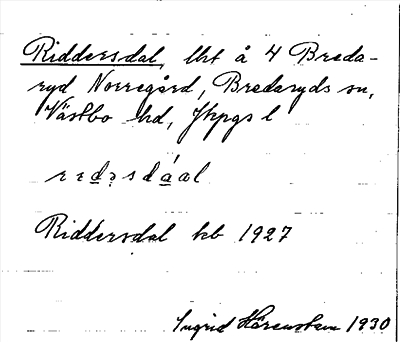 Riddersdal, lht å 4 Breda-
ryd Norregård, Bredaryds sn,
Västbo hd, Jkpgs l
Riddersdal kb 1927
Ingrid 1930